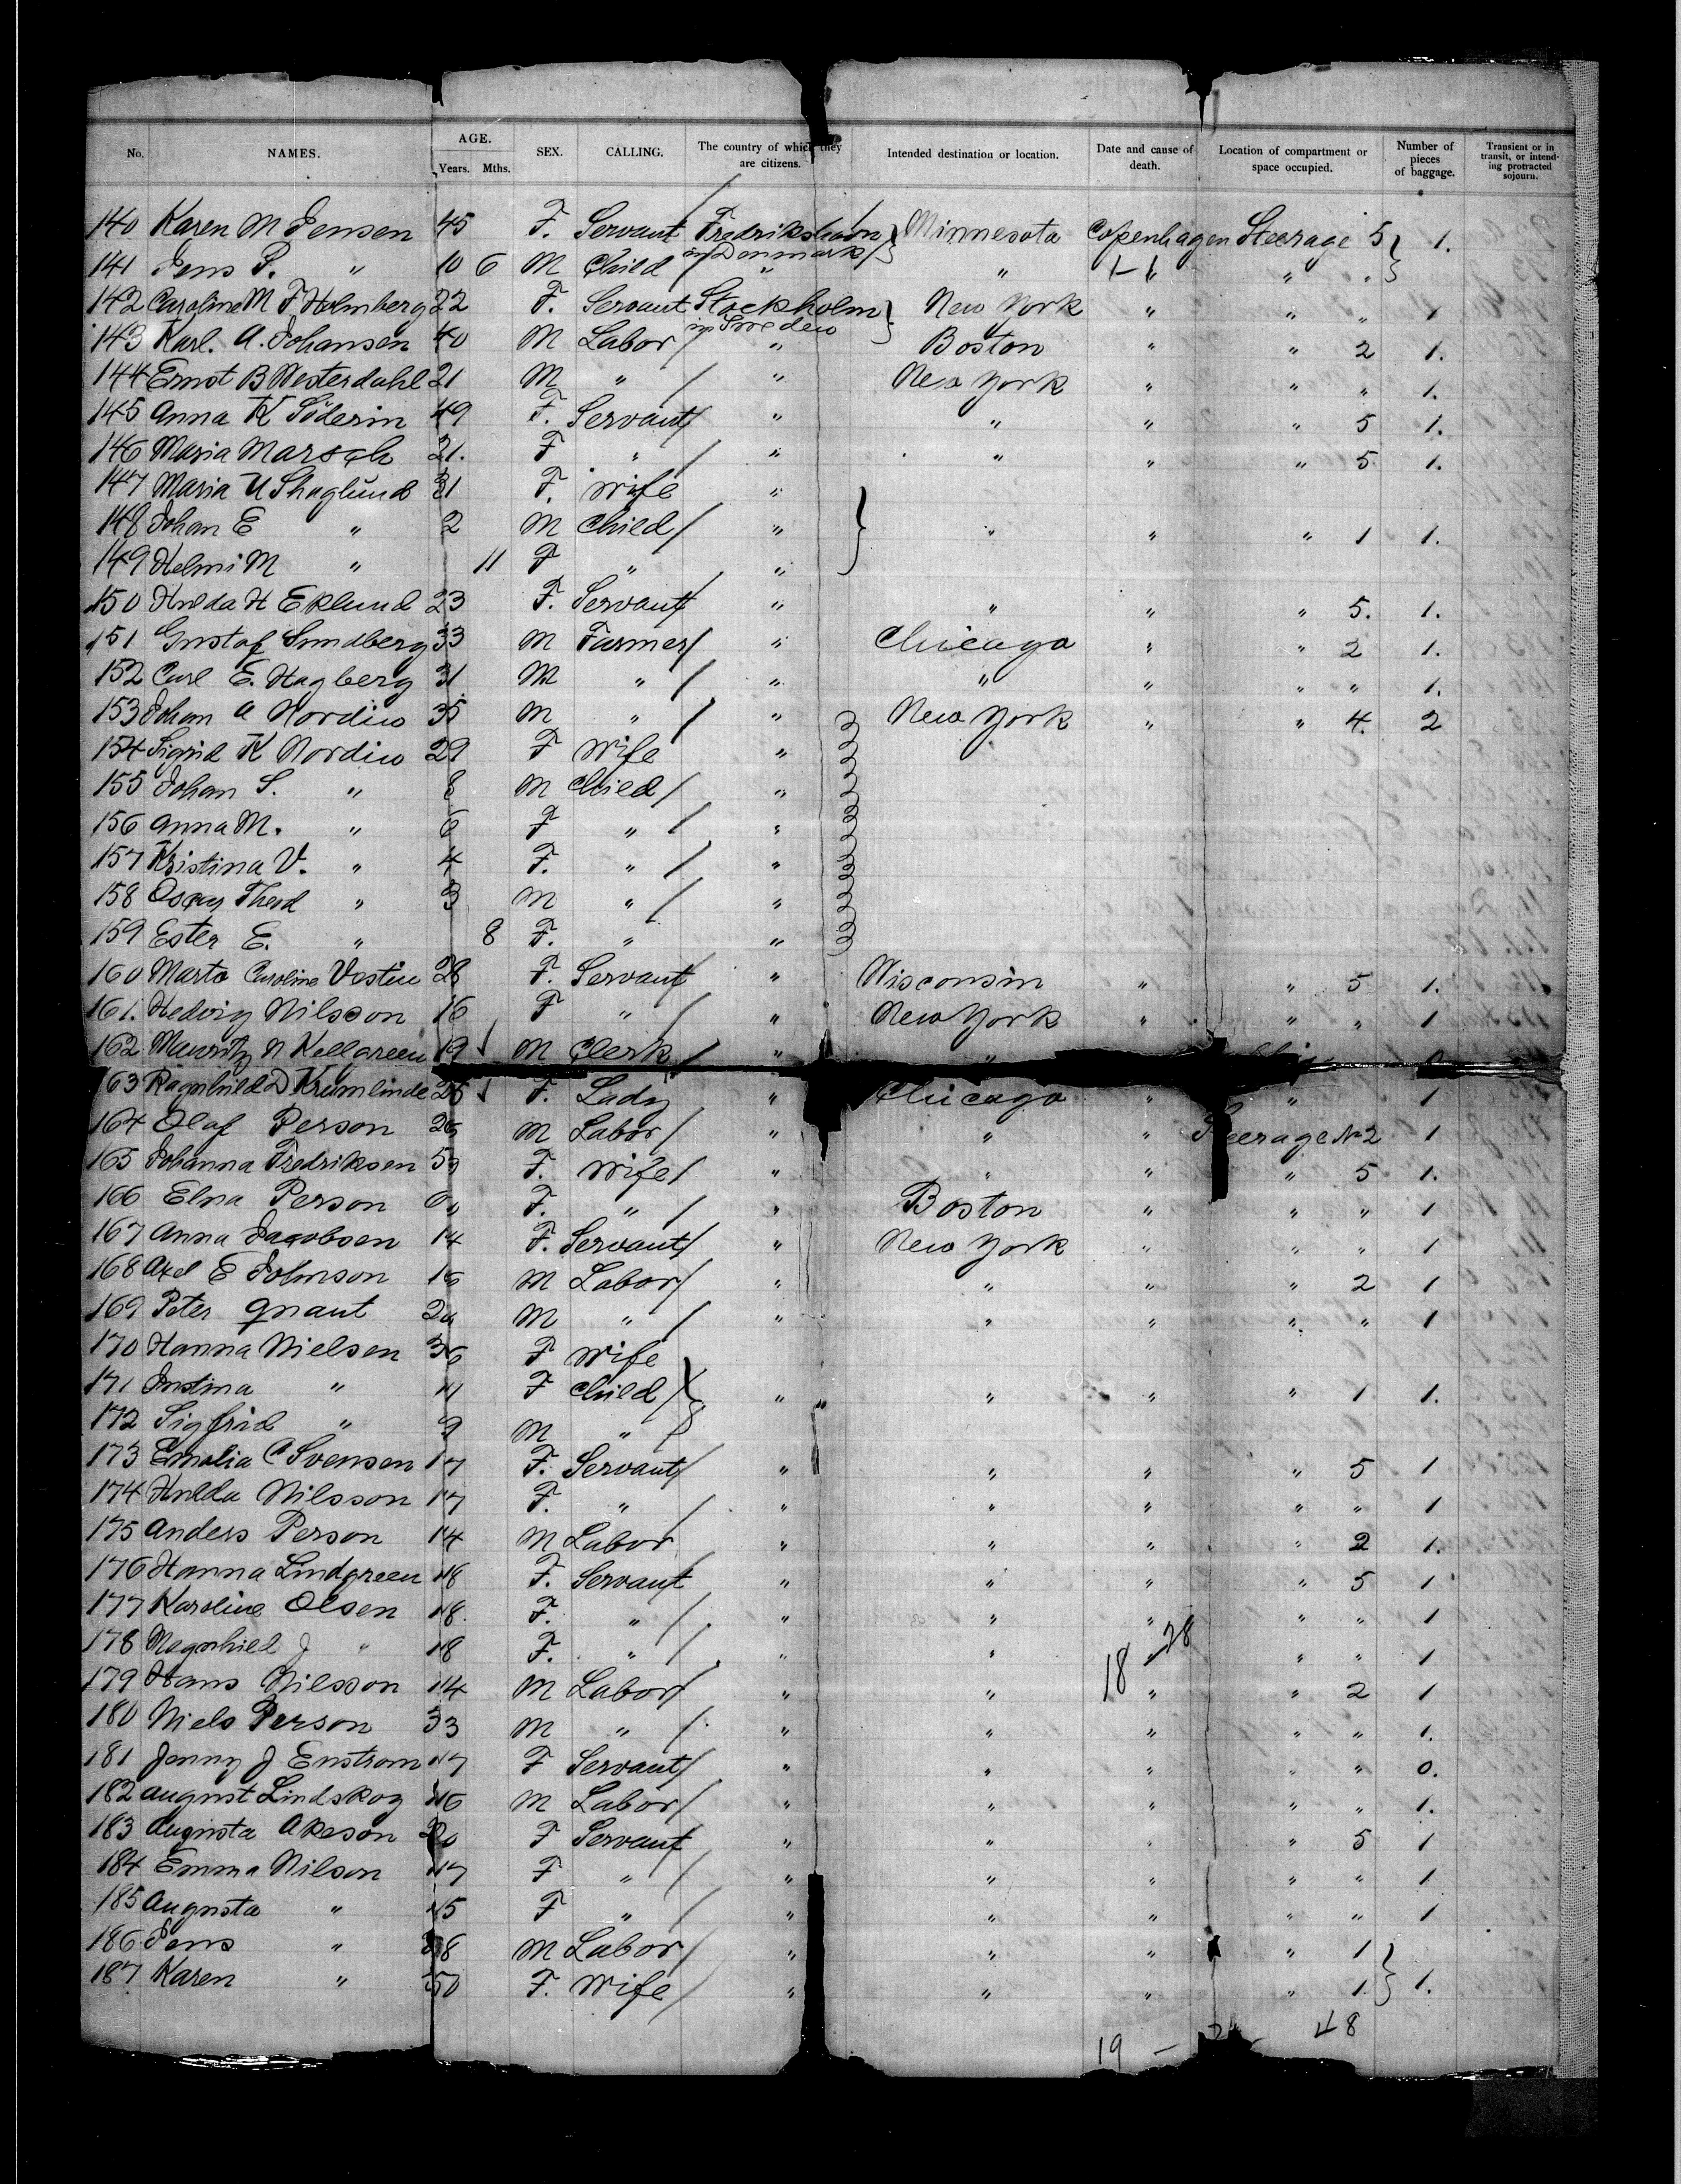 No. NAMES. AGE. Years. Mths. SEX. CALLING. The country of which they are citizens. Intended destination or location. Date and cause of death. Location of compartment or space occupied. Number of pieces of baggage. Transient or in transit, or intending protracted sojourn.
140 Karen M Jensen 45 F. Servant Fredrikshavn in Denmark Minnesota Copenhagen Steerage 5 1.
141 Jens P. " 10 6 M Child " " " " "
142 Caroline M F Holmberg 22 F. Servant Stockholm in Sweden New York " " " 1
143 Karl. A. Johansen 40 M Labor " Boston " " 2 1.
144 Ernst B Westerdahl 21 M " " New York " " 1.
145 Anna K Söderin 49 F. Servant " " " " 5 1.
146 Maria Marsch 21. F " " " " " 5 1.
147 Maria U Shaglund 31 F. Wife "
148 Johan E " 2 M Child " " " " 1 1.
149 Helmi M " 11 F " "
150 Hulda H Eklund 23 F. Servant " " " " 5. 1.
151 Gustaf Sundberg 33 M Farmer " Chicago " " 2 1.
152 Carl E. Hagberg 31 M " " " " " " 1.
153 Johan A Nordin 35 M " " New York " " 4. 2
154 Sigrid K Nordin 29 F Wife "
155 Johan S. " 8 M Child "
156 Anna M. " 6 F " "
157 Kristina V. " 4 F. " "
158 Oscar " 3 M " "
159 Ester E. " 8 F. " "
160 Marta Caroline Vestin 28 F. Servant " Wisconsin " " 5 1.
161. Hedvig Nilsson 16 F " " New York " " " 1
162 Mauritz N Kellgreen 19 M Clerk " "
163 Ragnhild D Krumlinde F. Lady " Chicago " " 1
164 Olaf Person M Labor " " " Steerage No 2 1
165 Johanna Fredriksen F. Wife " " " " 5 1.
166 Elna Person F. " " Boston " " " 1
167 Anna Jacobsen 14 F. Servant " New York " " " 1
168 Axel E Johnson M Labor " " " " 2 1
169 Peter Qnant M " " " " " " 1
170 Hanna Nielsen 36 F Wife
171 Justina " 11 F Child " " " " 1 1.
172 Sigfrid " 9 M "
173 Emelia C Svensen 17 F. Servant " " " " 5 1
174 Hulda Nilsson 17 F. " " " " " " 1
175 Anders Person 14 M Labor " " " " 2 1.
176 Hanna Lindgreen 18 F. Servant " " " " 5 1
177 Karoline Olsen 18. F. " " " " " " 1
178 Magnhild J " 18 F. " " " 18 28 " " 1
179 Hans Nilsson 14 M Labor " " " " 2 1
180 Niels Person 33 M " " " " " " 1.
181 Jenny J Enstrom 17 F Servant " " " " " 0.
182 August Lindskog 16 M Labor " " " " " 1.
183 Augusta Akeson 20 F Servant " " " " 5 1
184 Emma Nilson 17 F " " " " " " 1
185 Augusta " 15 F " " " " " " 1
186 Jens " M Labor " " " " 1
187 Karen " 50 F. Wife " " " " 1. 1.
19 — 48